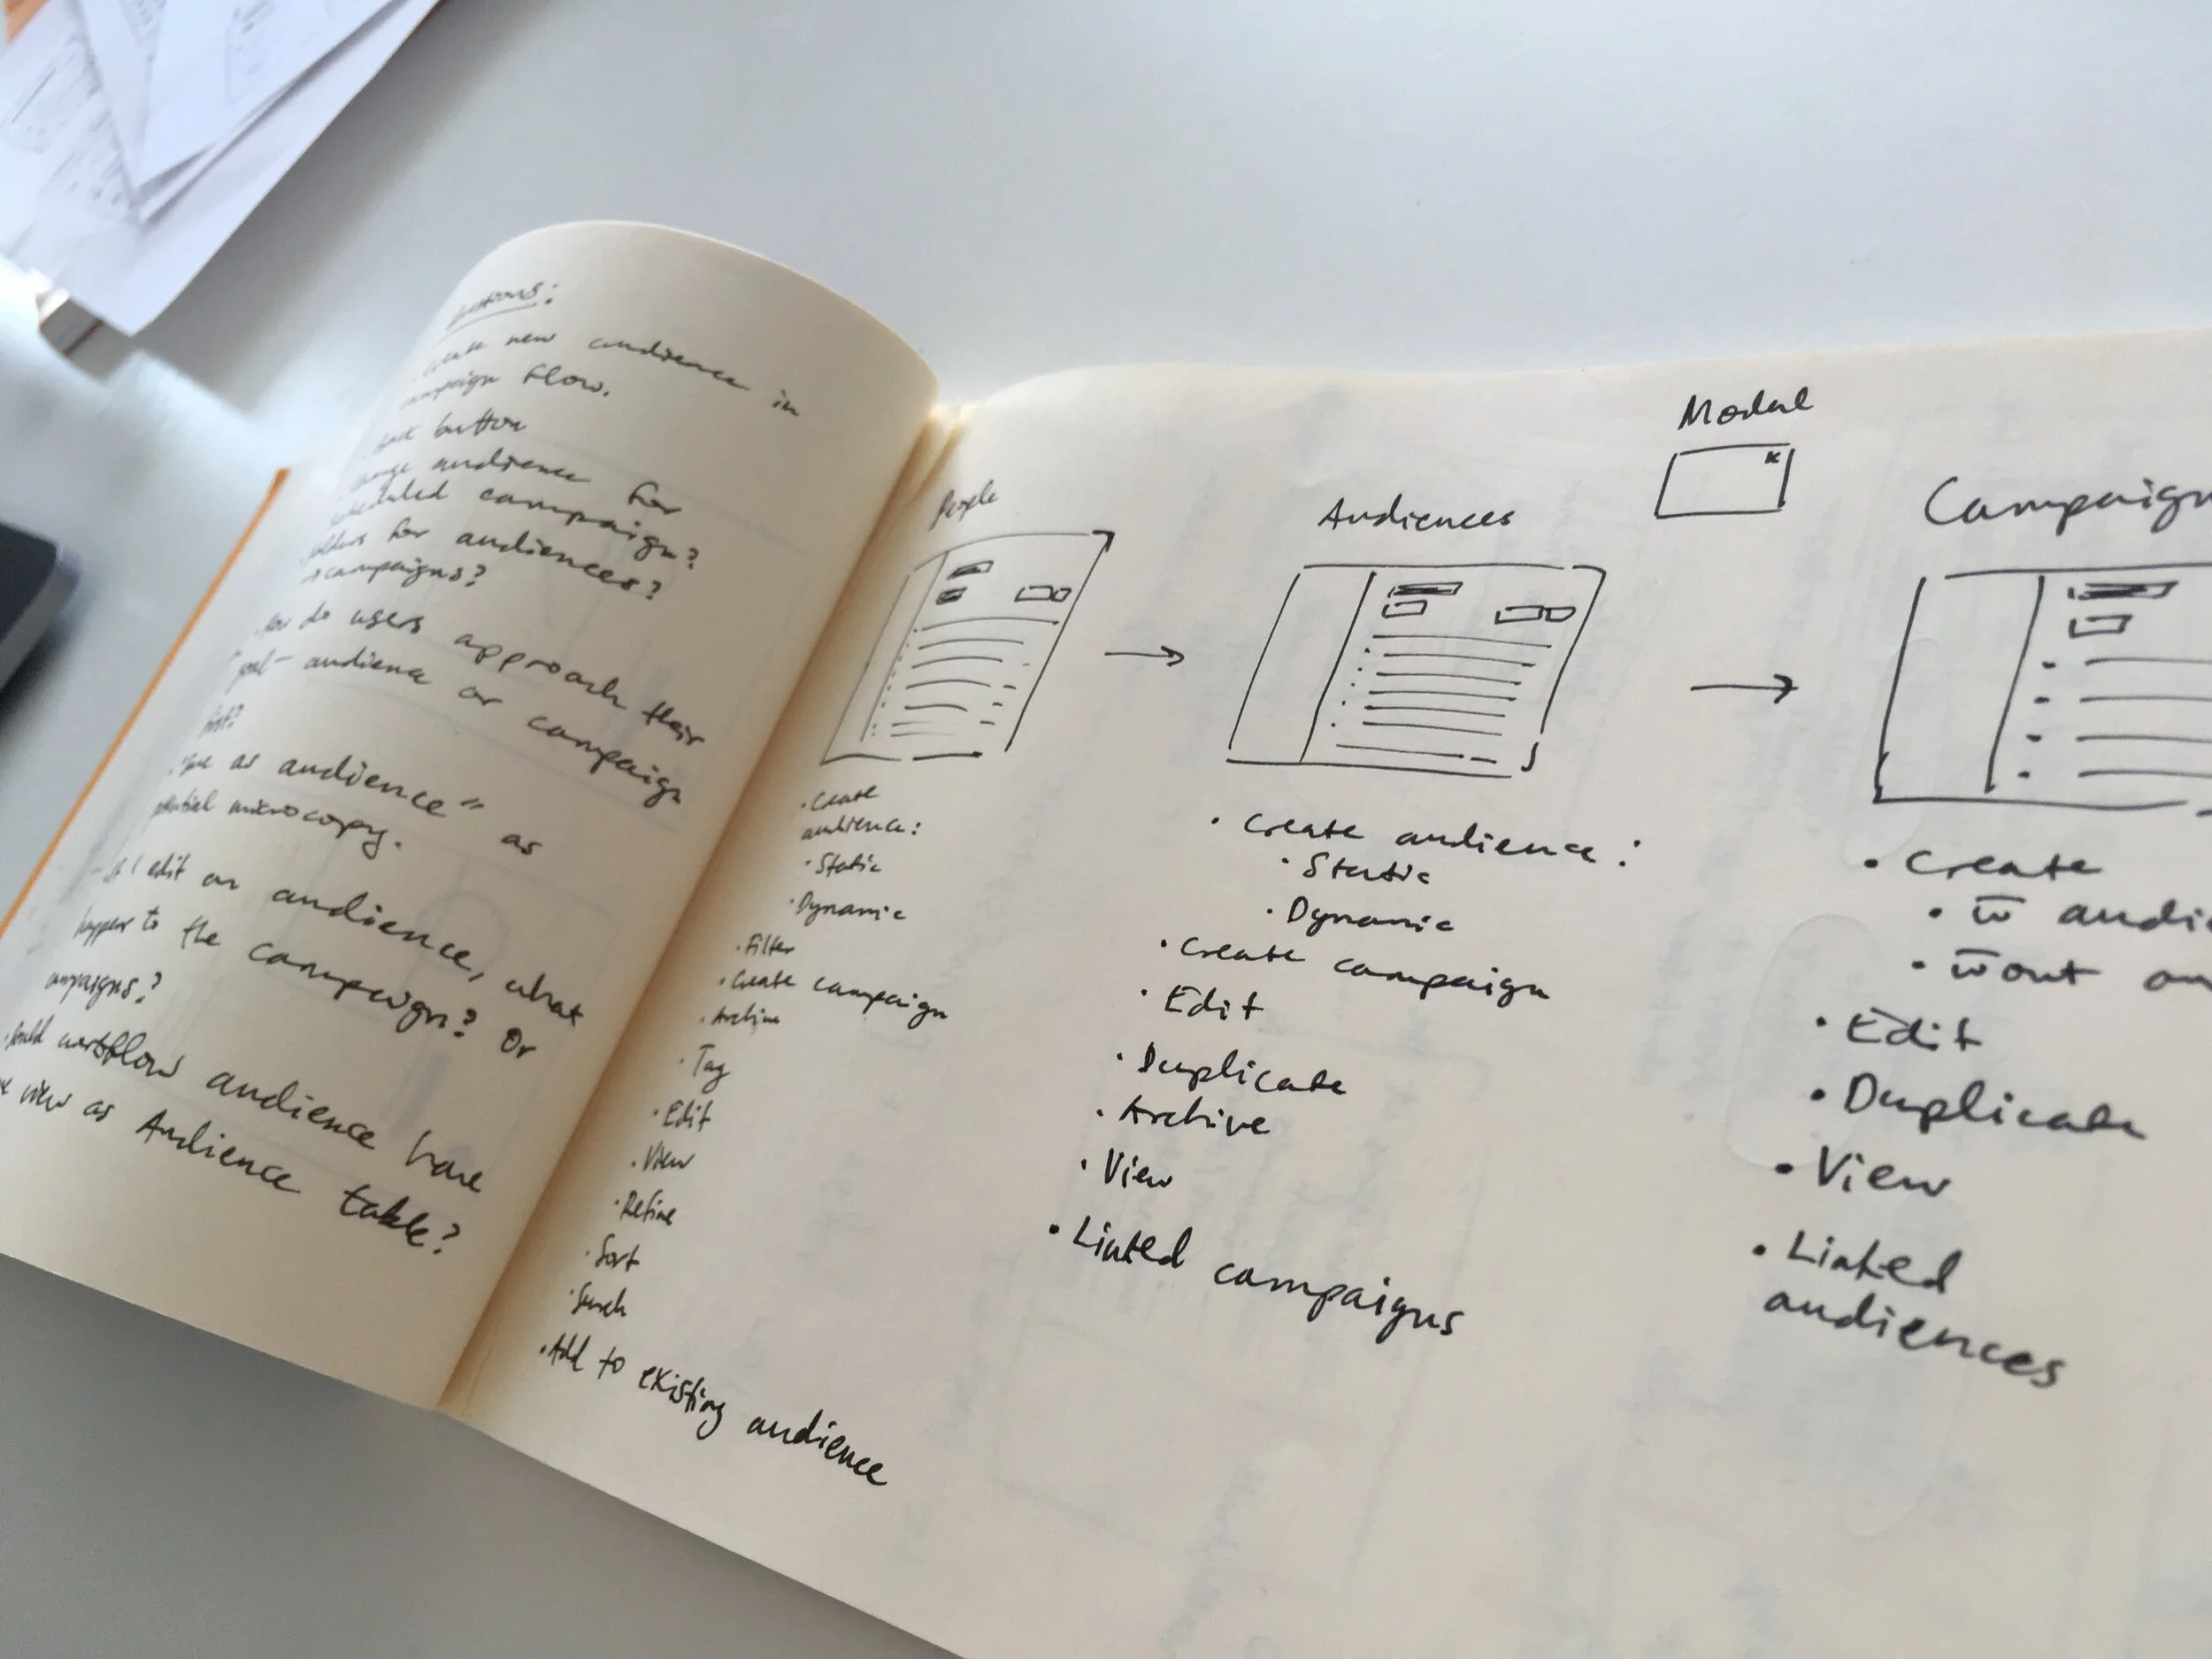 new audience in
flow.
button
audience for
campaign?
for audiences?
campaigns?
do users approach their
audience or campaign
first?
as audience" as
microcopy.
I edit an audience, what
happens to the campaign? Or
campaigns?
workflow audience have
view as Audience table?
People
• Create
audience:
• Static
• Dynamic
• Filter
• Create campaign
• Archive
• Tag
• Edit
• View
• Refine
• Sort
• Search
• Add to existing audience
Audiences
• Create audience:
• Static
• Dynamic
• Create campaign
• Edit
• Duplicate
• Archive
• View
• Linked campaigns
Modal
x
Campaign
• Create
• w̅ audi
• w̅out an
• Edit
• Duplicate
• View
• Linked
audiences